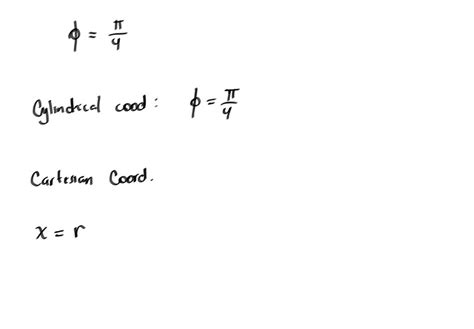 ϕ = π/4
Cylindrical cood: ϕ = π/4
Cartesian Coord.
x = r